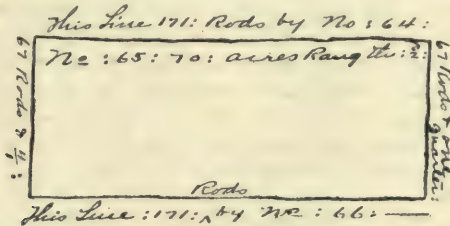 This Line 171: Rods by No: 64:
67 Rods &
No: 65: 70: acres Rang the: 2:
67 Rods & one quarter:
Rods
This Line: 171: ^ by No: 66: